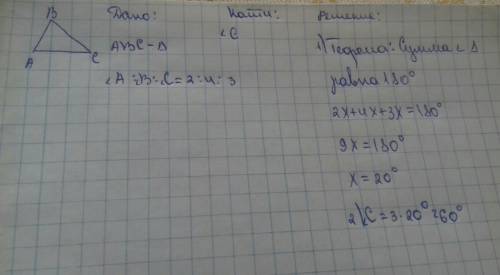 B
A
C
Дано:
ABC - Δ
∠A:B:C = 2:4:3
Найти:
∠C
Решение:
1) Теорема: Сумма ∠ Δ
равна 180°
2x+4x+3x=180°
9x=180°
x=20°
2) C = 3·20°=60°